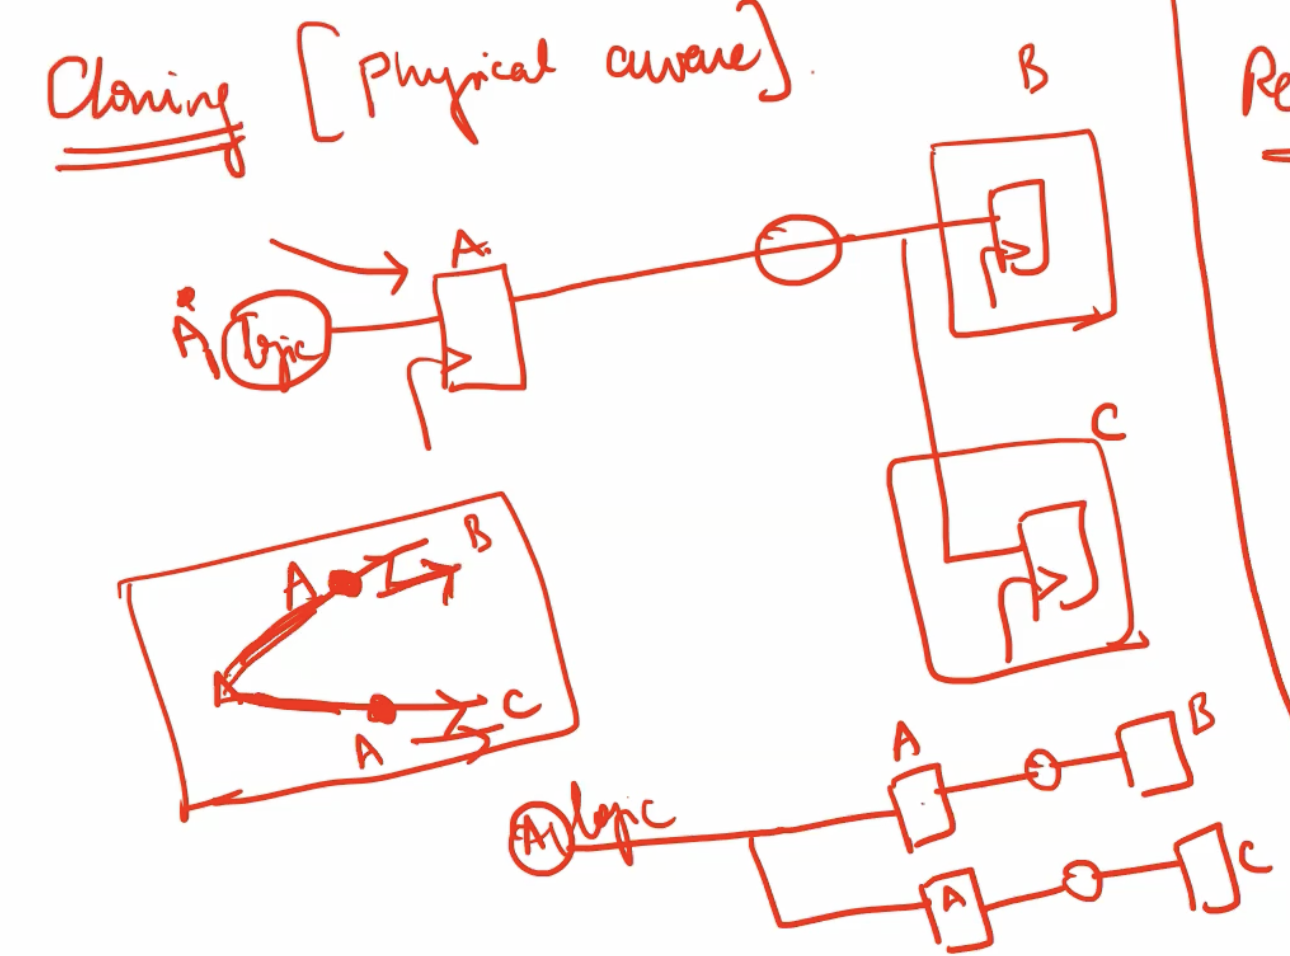 Cloning [Physical aware]
B
Re
A
A1 logic
C
A B
A C
A B
A1 logic
A C